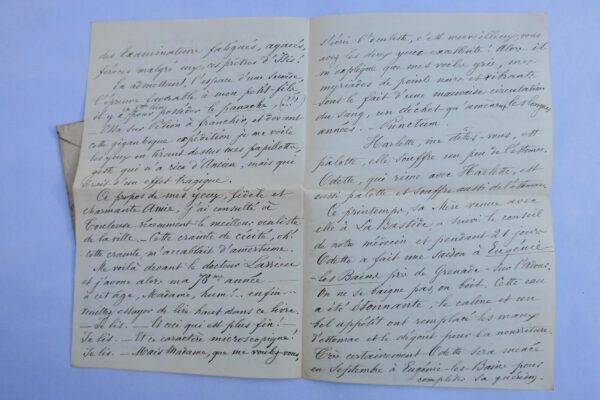 des Examinateurs fatigués, agacés,
féroces malgré eux, ces prêtres d'Isis!
En admettant l'espace d'une seconde
l'épreuve favorable à mon petit-fils,
il y a
pour posséder le panache, (...!!!)
Ossa sur Pélion à franchir, et devant
cette gigantesque expédition je me voile
les yeux en tirant dessus mes papillotes,
geste qui n'a rien d'ancien, mais qui
serait d'un effet tragique.
À propos de mes yeux, fidèle et
charmante Amie, j'ai consulté à
Toulouse récemment le meilleur oculiste
de la ville. — Cette crainte de cécité, oh!
cette crainte, m'accablait d'amertume.
Me voilà devant le docteur
et j'avoue alors ma 78me année —
à cet âge, Madame, hum!.. enfin
veuillez essayer de lire haut dans ce livre.
— Je lis. — Et ceci qui est plus fin? —
Je lis. — Et ce caractère microscopique?
Je lis. — Mais Madame, que me voulez-vous,
s'écrie l'oculiste, c'est merveilleux, vous
avez les deux yeux excellents! Alors il
m'explique que mes voiles gris, mes
myriades de points noirs et vibrants
sont le fait d'une mauvaise circulation
du sang, un déchet qu'amènent les longues
années. — Punctum.
Harlette, me dites-vous, est
pâlotte, elle souffre un peu de l'estomac.
Odette, qui rime avec Harlette, est
aussi pâlotte et souffre aussi de l'estomac.
Ce printemps, sa Mère venue avec
elle à La Bastide, a suivi le conseil
de notre médecin et pendant 21 jours
Odette a fait une saison à Eugénie-
les-Bains près de Grenade-sur-l'Adour.
On ne se baigne pas, on boit. Cette eau
a été étonnante, le calme et un
bel appétit ont remplacé les maux
d'estomac et le dégoût pour la nourriture.
Très certainement Odette sera menée
en Septembre à Eugénie-les-Bains pour
compléter sa guérison.